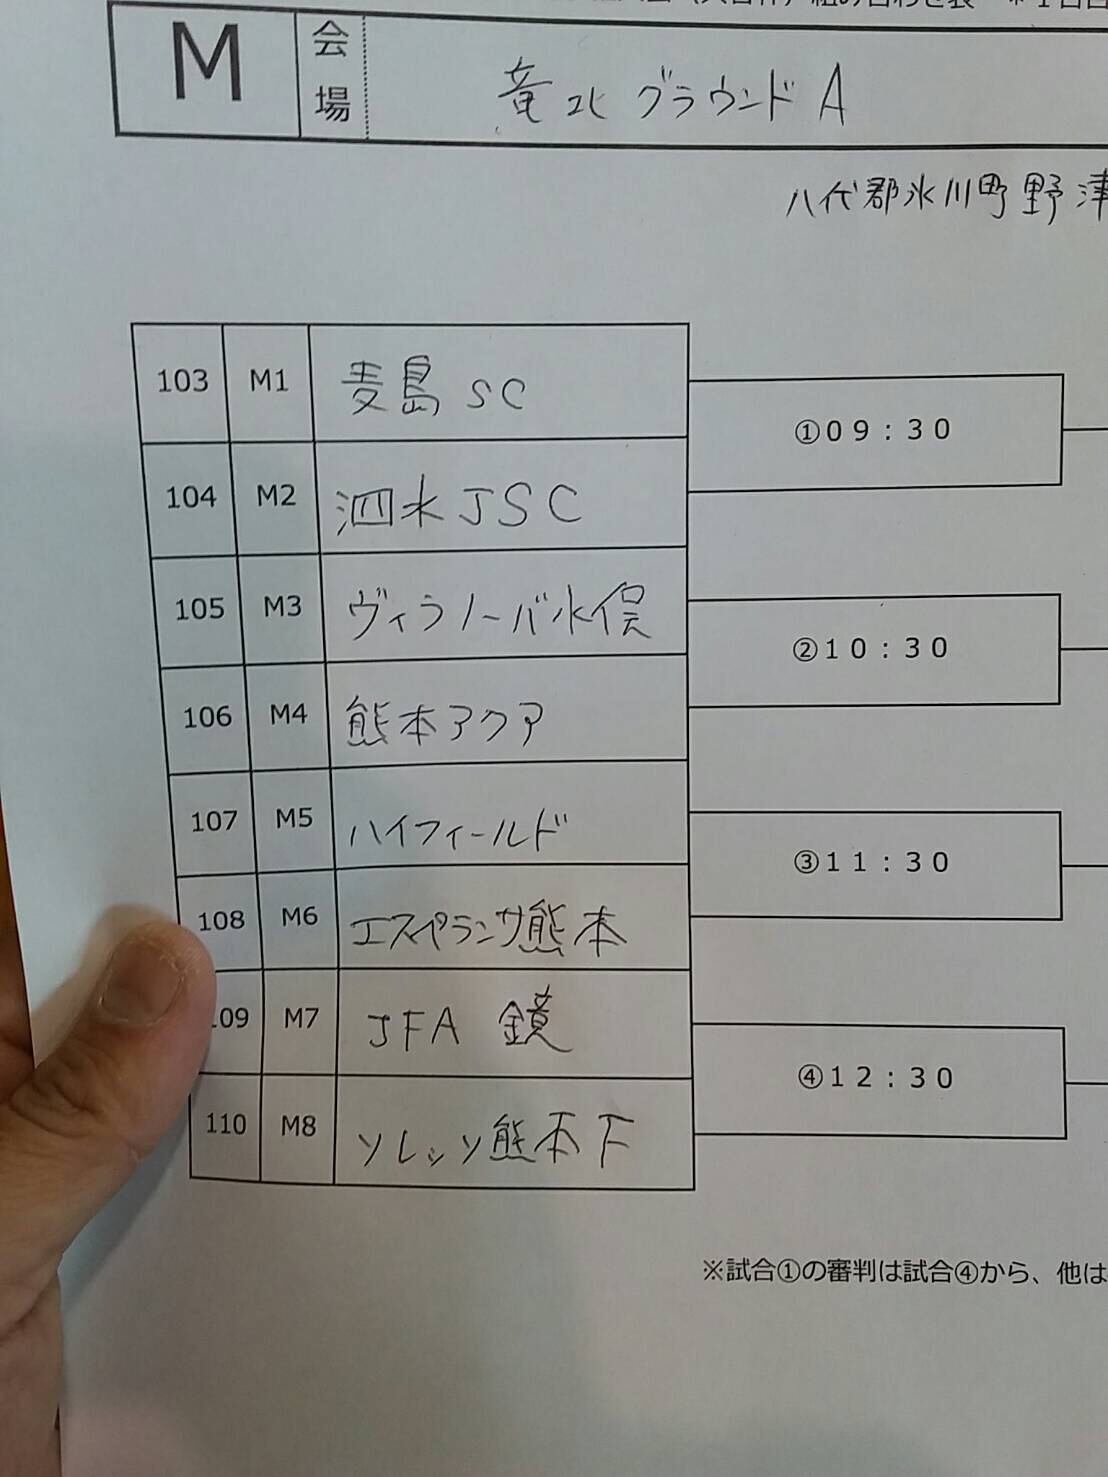 組み合わせ表 ＊1日目
M 会場 竜北グラウンドA
八代郡氷川町野津
103 M1 麦島SC
①09:30
104 M2 泗水JSC
105 M3 ヴィラノーバ水俣
②10:30
106 M4 熊本アクア
107 M5 ハイフィールド
③11:30
108 M6 エスペランサ熊本
109 M7 JFA 鏡
④12:30
110 M8 ソレッソ熊本F
※試合①の審判は試合④から、他は